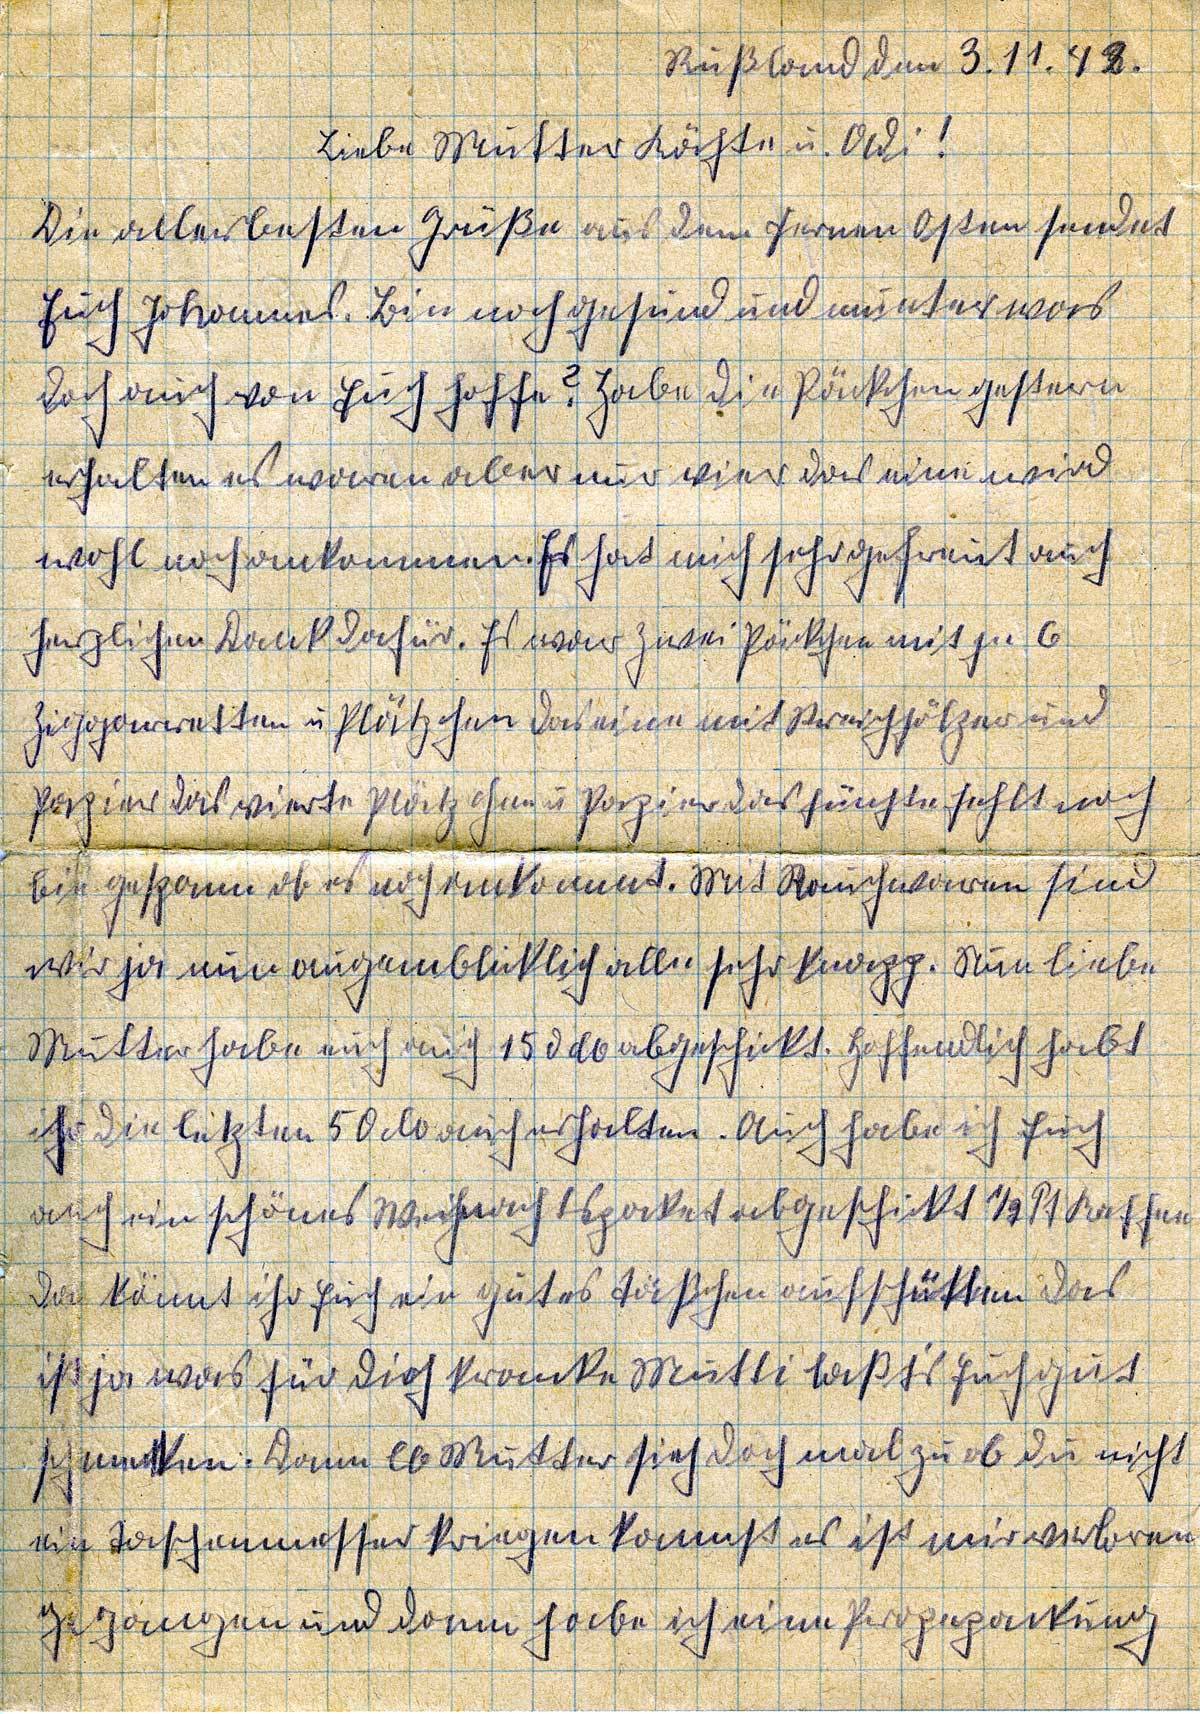 Rußland den 3.11.42.
Liebe Mutter Käthe u. Adi!
Die allerbesten Grüße aus dem fernen Osten sendet
Euch Johannes. Bin noch gesund und munter was
doch auch von Euch hoffe? Habe die Päckchen gestern
erhalten es waren aber nur vier das eine wird
wohl noch ankommen. Es hat mich sehr gefreut auch
herzlichen Dank dafür. Es war zwei Päckchen mit je 6
Ziggaretten u Plätzchen das eine mit Streichhölzer und
Papier das vierte Plätzchen u Papier das fünfte fehlt noch
bin gespann ob es noch ankommt. Mit Rauchwaren sind
wir ja nun augenblicklich alle sehr knapp. Nun liebe
Mutter habe euch auch 15 abgeschickt. Hoffendlich habt
ihr die letzten 50 auch erhalten. Auch habe ich Euch
auch ein schönes Weihnachtspaket abgeschickt 1/2 Pf Kaffee
da könnt ihr Euch ein gutes Täßchen aufschütten das
iß ja was für dich kranke Mutti laßt's Euch gut
schmecken. Dann lb Mutter sieh doch mal zu ob du nicht
ein Taschenmesser kriegen kannst es ist mir verloren
gegangen und dann habe ich eine